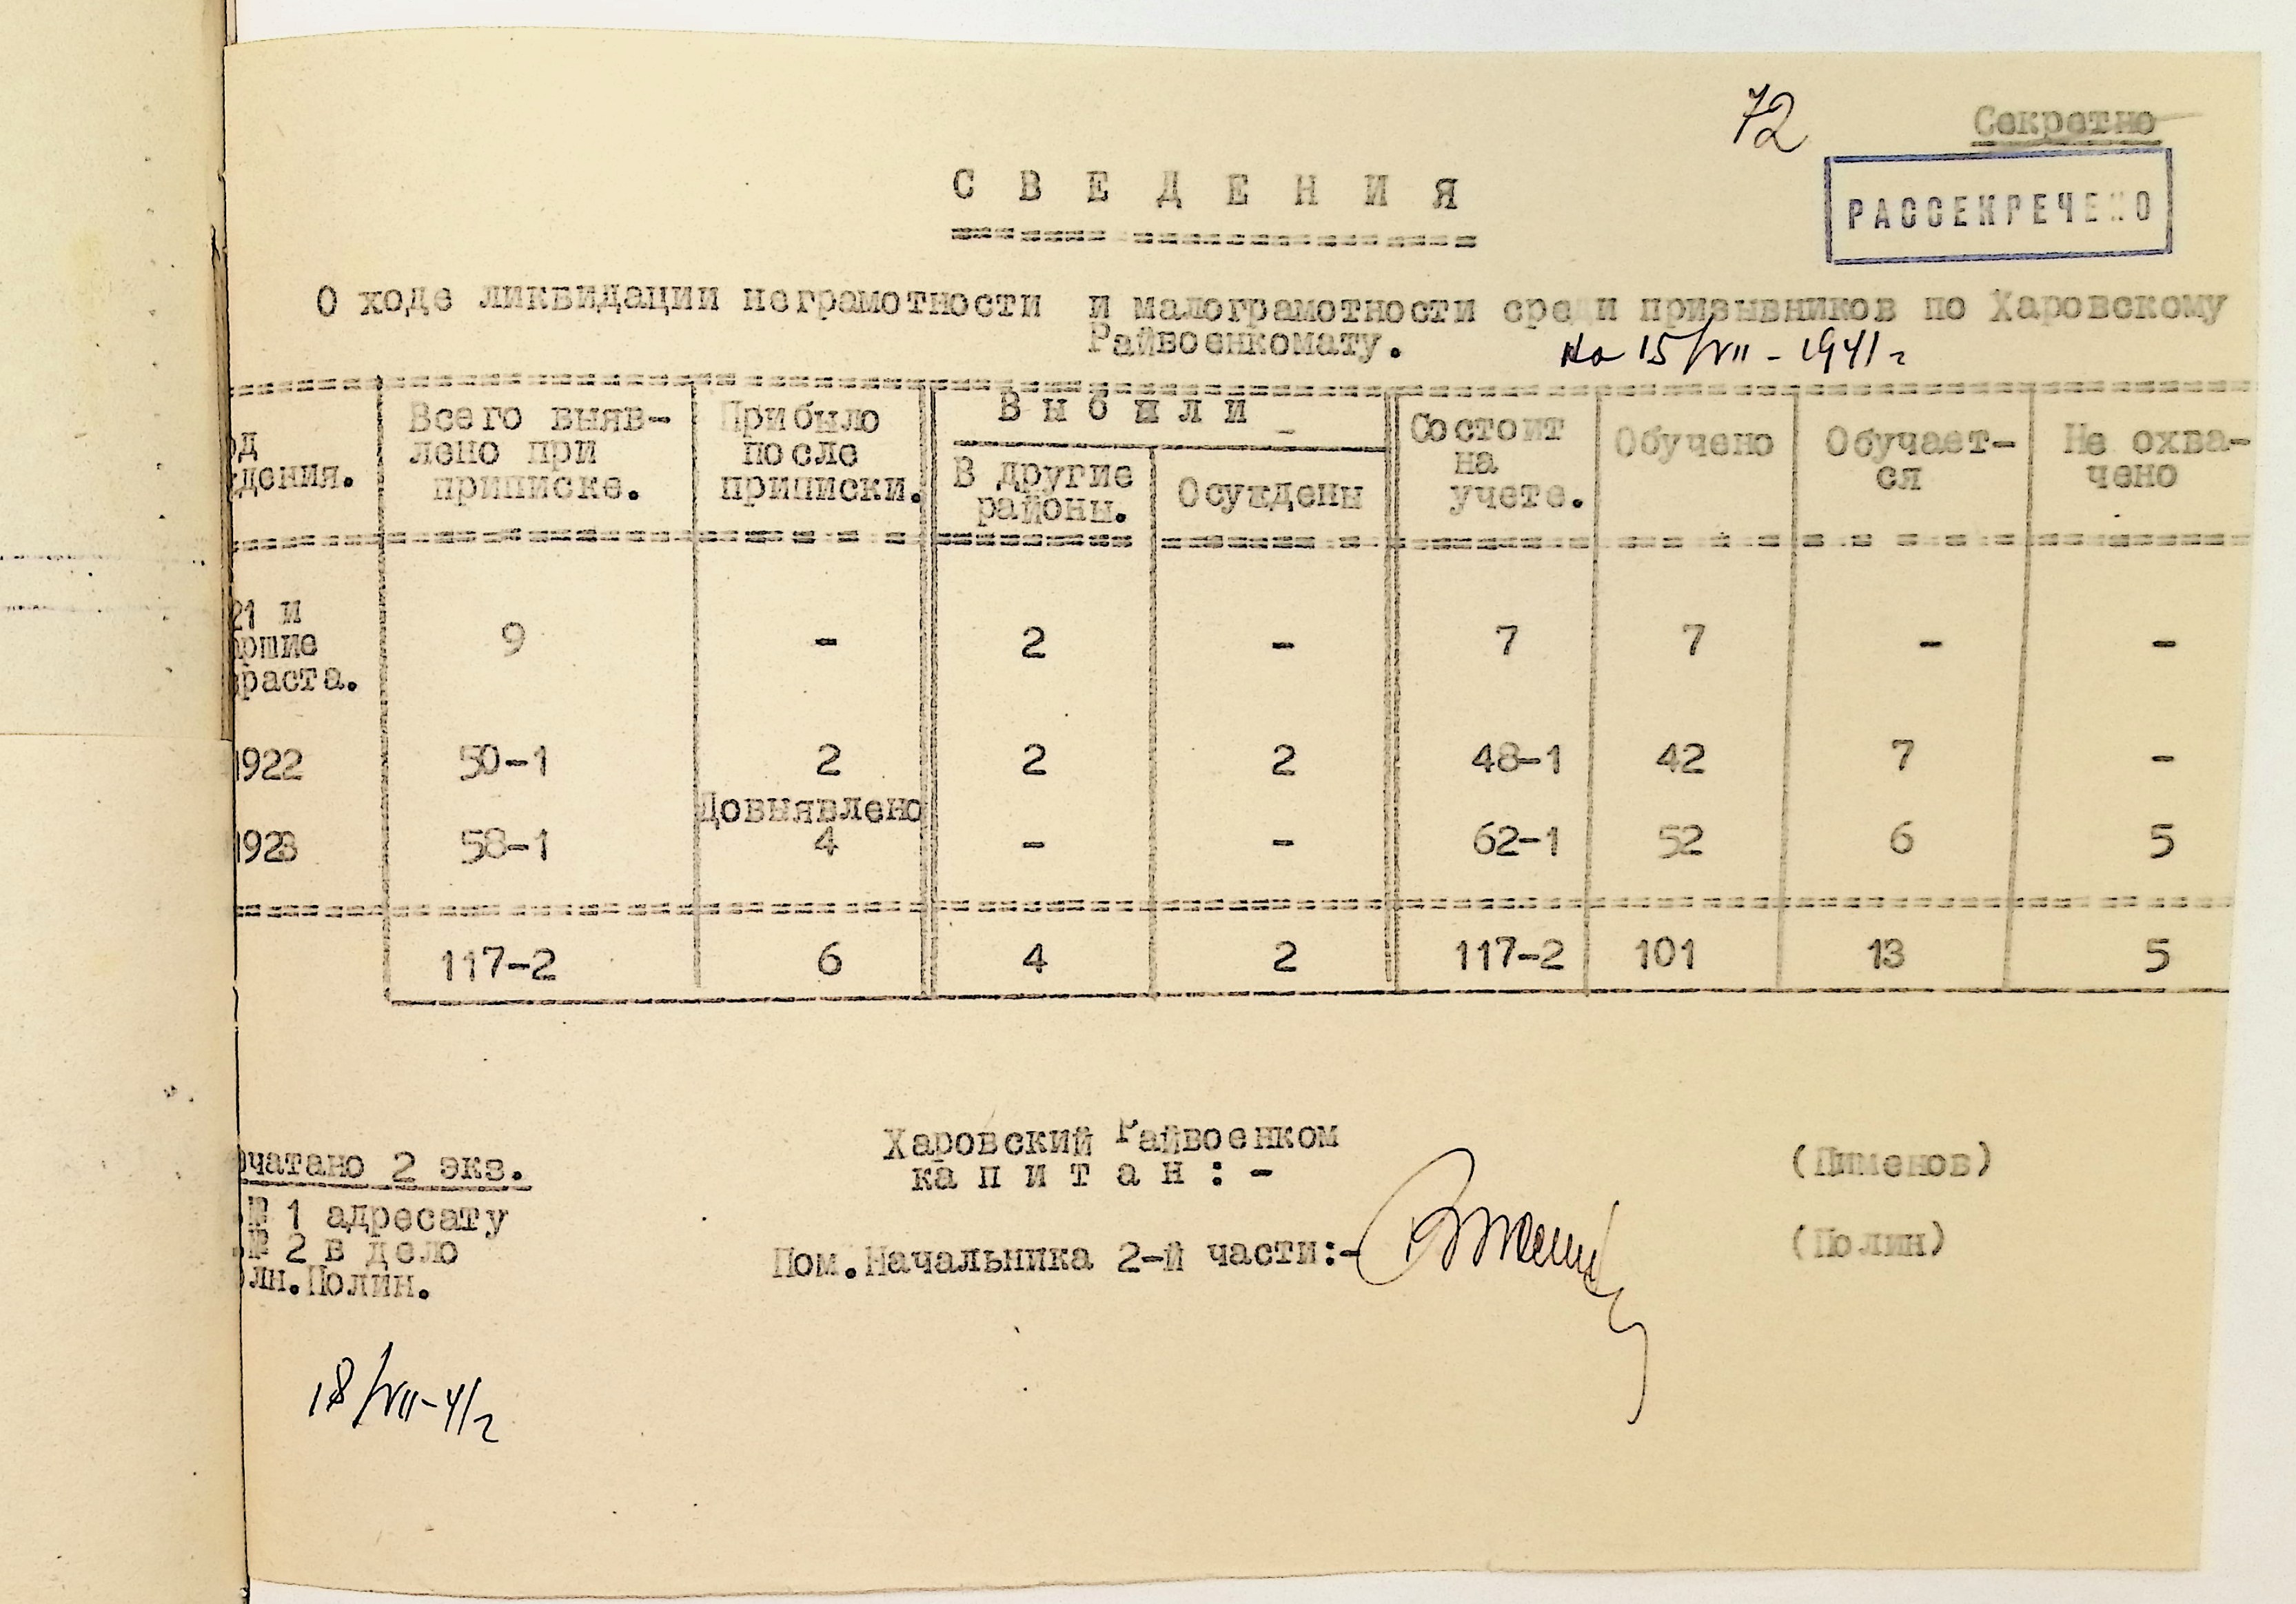 72
Секретно
РАССЕКРЕЧЕНО
СВЕДЕНИЯ
О ходе ликвидации неграмотности и малограмотности среди призывников по Харовскому
Райвоенкомату. на 15/VII - 1941 г
од
дения.
Всего выяв-
лено при
приписке.
Прибыло
после
приписки.
Выбыли
В другие
районы.
Осуждены
Состоит
на
учете.
Обучено
Обучает-
ся
Не охва-
чено
21 и
ршие
раста.
9 - 2 - 7 7 - -
1922 50-1 2 2 2 48-1 42 7 -
Довыявлено
1923 58-1 4 - - 62-1 52 6 5
117-2 6 4 2 117-2 101 13 5
Харовский Райвоенком
капитан:- (Пименов)
Пом.Начальника 2-й части:- (Полин)
чатано 2 экз.
№ 1 адресату
№ 2 в дело
лн.Полин.
18/VII-41г